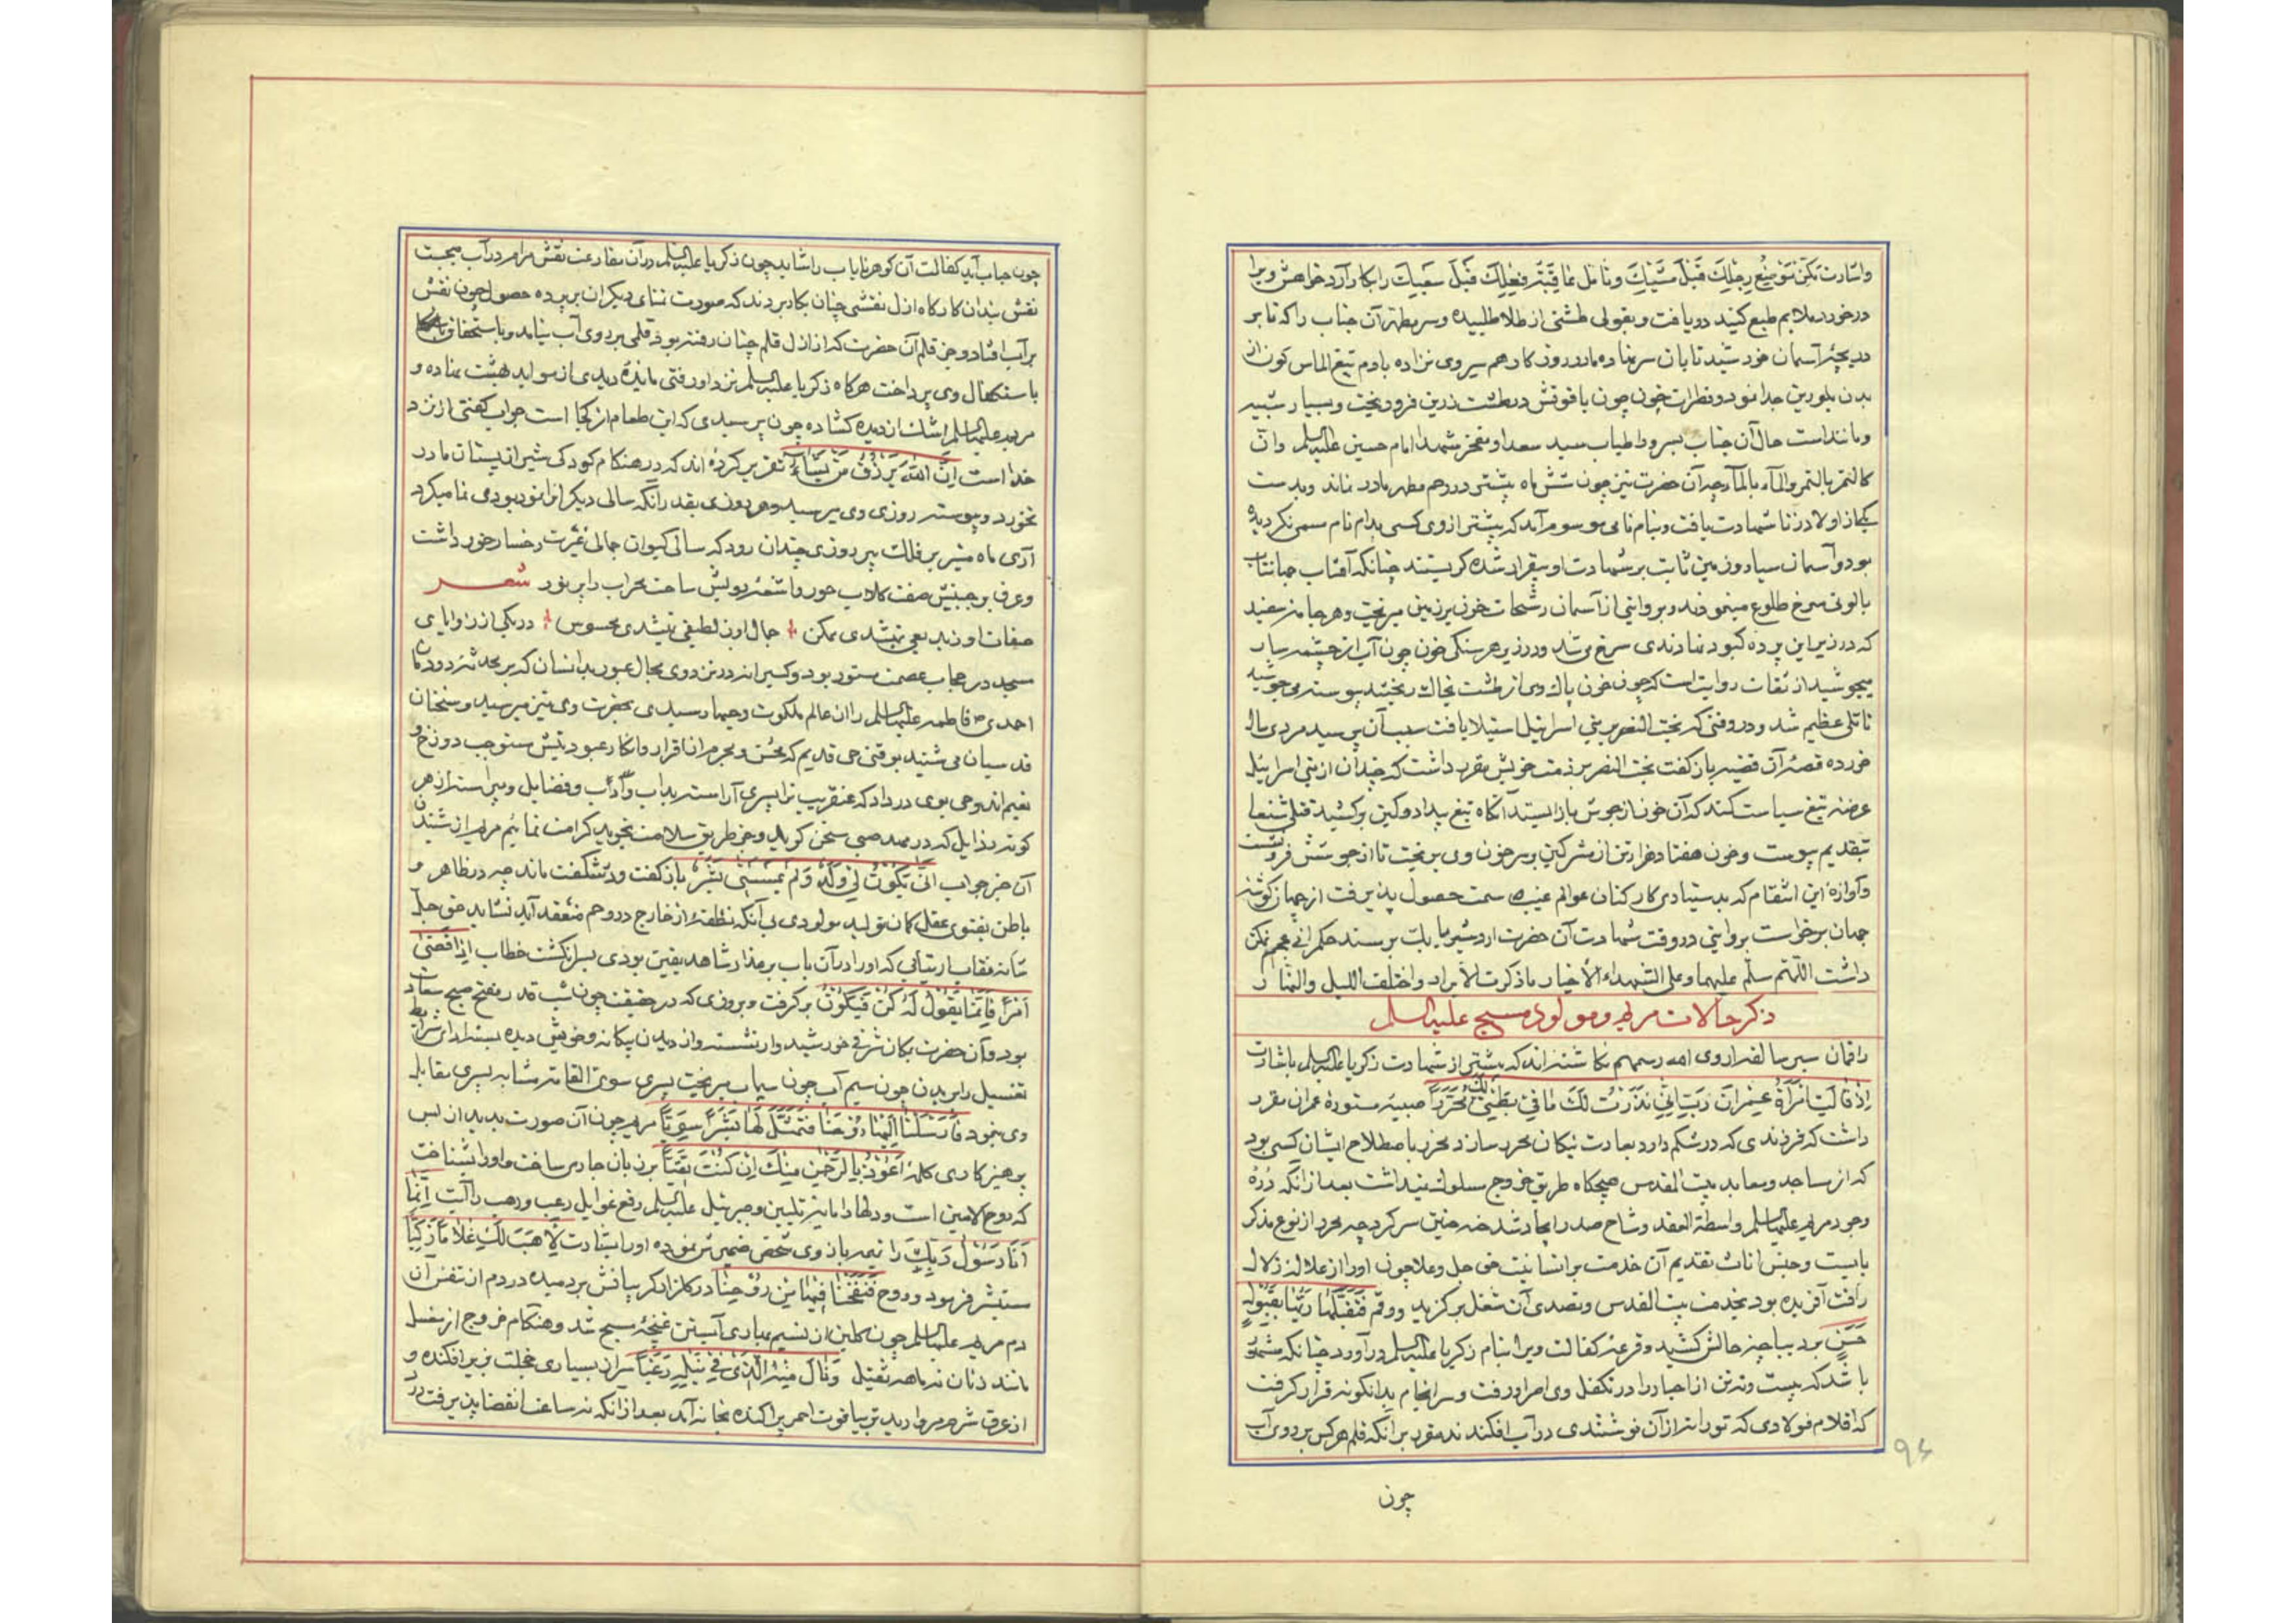 واشارت تمکن توضع رجلک قبل مشیک و تامل عاقبة فعلک قبل سعیک را بکار آرد خواهش ویرا
درخور ملایم طبع کنید دریافت و بقولی طشتی از طلا طلبیده و سر مطهر آن جناب را که تا بر
دریچهٔ آسمان خورشید تابان سر نهاده مادر روزکار دهم سیروی نزاده بادم تیغ الماس کون از
بدن بلورین جدا نمود و قطرات خون چون یاقوتش در طشت زرین فرو ریخت و بسیار شبیه
و مانند است حال آن جناب بسرور اطیاب سید سعدا و مفخر شهدا امام حسین علیه السلم و ان
کالتمر بالتمر والمآء بالمآء چه آن حضرت نیز چون شش ماه بیشتر در رحم مطهر مادر نماند و بدست
یکی از اولاد زنا شهادت یافت و بنام نامی موسوم آمد که پیشتر از وی کسی بدام نام سمی نکردیده
بود و آسمان سیار و زمین ثابت بر شهادت او بیقرار شده کریستند چنانکه آفتاب جهانتاب
بالونی سرخ طلوع مینمود و بروایتی از آسمان رشحات خون بر زمین میریخت و هر جامهٔ سفید
که در زیر این پرده کبود نهادندی سرخ می شد و در زیر هر سنکی خون چون آب از چشمه سار
میجوشید از ثقات روایت است که چون خون پاک وی از طشت بخاک ریختند پیوسته می جوشید
تا تلی عظیم شد و در وقتی که بخت النصر بر بنی اسرائیل استیلا یافت سبب آن پرسید مردی سال
خورده قصهٔ آن قضیه باز کفت بخت النصر بر ذمت خویش مقرر داشت که چندان از بنی اسرائیل
عرضه تیغ سیاست کند که آن خون از جوش باز ایستد آنکاه تیغ بیداد و کین برکشید قتلی شنعا
بتقدیم پیوست و خون هفتاد هزار تن از مشرکین بر سر خون وی بریخت تا از جوشش فرو نشست
و آوازهٔ این انتقام که بدستیاری کارکنان عوالم غیب سمت حصول پذیرفت از جهان کوشه
جهان برخواست بروایتی در وقت شهادت آن حضرت اردشیر بابک بر مسند حکمرانی عجم تمکن
داشت اللهم سلم علیهما و علی الشهداء الأخیار ما ذکرت الأبرار و اختلف اللیل والنهار
ذکر حالات مریم و مولود مسیح علیه السلم
راقمان سیر سالفه اروی الله رسمهم نکاشته اند که پیشتر از شهادت زکریا علیه السلم باشارت
اِذْ قالَتِ امْرَأَةُ عِمْرانَ رَبِّ اِنّی نَذَرْتُ لَکَ ما فی بَطْنی مُحَرَّراً صبیه ستوده عمران مقرر
داشت که فرزندی که در شکم دارد بعادت نیکان محرر سازد و محرر باصطلاح ایشان کسی بود
که از مساجد و معابد بیت المقدس هیچکاه طریق خروج مسلوک نمیداشت بعد از آنکه درّهٔ
وجود مریم علیها السلم واسطة العقد وشاح صدر ایجاد شد خود حنین سر کرد چه محرر از نوع مذکر
بایست و جنس اناث بتقدیم آن خدمت برانشایست حق جل و علا چون او را از علاله زلال
رأفت آفریده بود بخدمت بیت المقدس و تصدی آن شغل برکزید و رقم فَتَقَبَّلَها رَبُّها بِقَبُولٍ
حَسَنٍ بر دیباچهٔ حالش کشید و قرعهٔ کفالت ویرا بنام زکریا علیه السلم درآورد چنانکه مشروح
باشد که بیست و نه تن از احبار را در تکفل وی مرا رفت و سرانجام بدانکونه قرار کرفت
که اقلام فولادی که توراة از آن نوشتندی در آب افکندند مقرر بر آنکه قلم هر کس بر روی آب
چون
۹۶
چون حباب آید کفالت آن کوهر نایاب را شاید چون زکریا علیه السلم در آن مقارعت نقش مرام در آب میجست
نقش بندان کارکاه ازل نقشی چنان بکار بردند که صورت تمنای دیکران بر پرده حصول چون نقش
بر آب افتاد و جز قلم آن حضرت که از ازل قلم چنان رفته بود قلمی بر روی آب نیامد و باستحقاق
باستکفال وی پرداخت هرکاه زکریا علیه السلم نزد او رفتی مایدهٔ دیدی از مواید بهشت نهاده و
مریم علیها السلم اشک از دیده کشاده چون پرسیدی که این طعام از کجا است جواب کفتی از نزد
خدا است اِنَّ اللهَ یَرْزُقُ مَنْ یَشآءُ تقریر کرده اند که در هنکام کودکی شیر از پستان مادر
نخورد و پیوسته روزی وی میرسید و هر روزی بقدر آنکه سالی دیکر انرا نمو بودی نما میکرد
آری ماه منیر بر فلک پیر روزی چندان رود که سالی کیوان جمالی غیرت رخسار خور داشت
و عرق بر جبینش صفت کلاب حور و اشعهٔ رویش ساحت محراب را پر نور شعر
صفات او نبد یعی نبشدی ممکن جمال او ز لطیفی نبشدی محسوس در یکی از زوایای
مسجد در حجاب عصمت مستور بود و کسیرا نزد وی مجال عبور بدانسان که بر محدثهٔ دودمان
احمدی فاطمه علیها السلم را از عالم ملکوت وحیها رسیدی بحضرت وی نیز میرسید و سخنان
قدسیان می شنید بوقتی حی قدیم که محسن و مجرم را اقرار و انکار عبودیتش مستوجب دوزخ و
نعیم اند وحی بوی در داد که عنقریب ترا پسری آراسته بداب و آداب و فضایل و پیراسته از هر
کونه رذایل که در مهد صبی سخن کوید و جز طریق سلامت نجوید کرامت نمائیم مریم از شنیدن
آن خبر جواب اَنّی یَکُونُ لی وَلَدٌ وَ لَمْ یَمْسَسْنی بَشَرٌ باز کفت و در شکفت ماند چه در ظاهر و
باطن بفتوی عقل کان تولید مولودی بی آنکه نطفهٔ از خارج در رحم منعقد آید نشاید حق جل
شأنه نقاب ارتیابی که او را در آن باب بر عذار شاهد یقین بودی بسرانکشت خطاب اِذا قَضی
اَمْراً فَاِنَّما یَقُولُ لَهُ کُنْ فَیَکُونُ برکرفت و بروزی که در حقیقت چون شب قدر مفتح صبح سعادت
بود و آن حضرت بمکان شرقی خورشیدوار نشسته و از دیدن بیکانه و خویش دیده بسته ادای شرایط
تغسیل را بر بدن چون سیم آب چون سیماب میریخت پسری سوی القامه مشابه بسری مقابله
وی نمود فَاَرْسَلْنا اِلَیْها رُوحَنا فَتَمَثَّلَ لَها بَشَراً سَوِیّاً مریم چون آن صورت بدید از بس
پرهیزکاری کلمهٔ اَعُوذُ بِالرَّحْمنِ مِنْکَ اِنْ کُنْتَ تَقِیّاً بر زبان جاری ساخت و او را بشناخت
که روح الامین است و دلها را مایهٔ تلیین و جبرئیل علیه السلم رفع غوایل رعب و رهب را آیت اِنَّما
اَنَا رَسُولُ رَبِّکِ را تیمه بازوی شخص ضمیرش نموده او را بشارت لِاَهَبَ لَکِ غُلاماً زَکِیّاً
مستبشر فرمود و روح فَنَفَخْنا فیها مِنْ رُوحِنا در کلزار کریبانش بردمیده در دم از نفس آن
دم مریم علیها السلم چون کلبن از نسیم بهاری آبستن غنچهٔ مسیح شد و هنکام خروج از مغسل
مانند زنان نه ماهه ثقیل وَ نالَ مِنْهُ الَّذی فی نَیْلِه رَغَباً سر از بسیاری خجلت بزیر افکنده و
از عرق شرم مروارید تر بیاقوت احمر پراکنده بخانه آمد بعد از آنکه نه ساعت انقضا پذیرفت درد